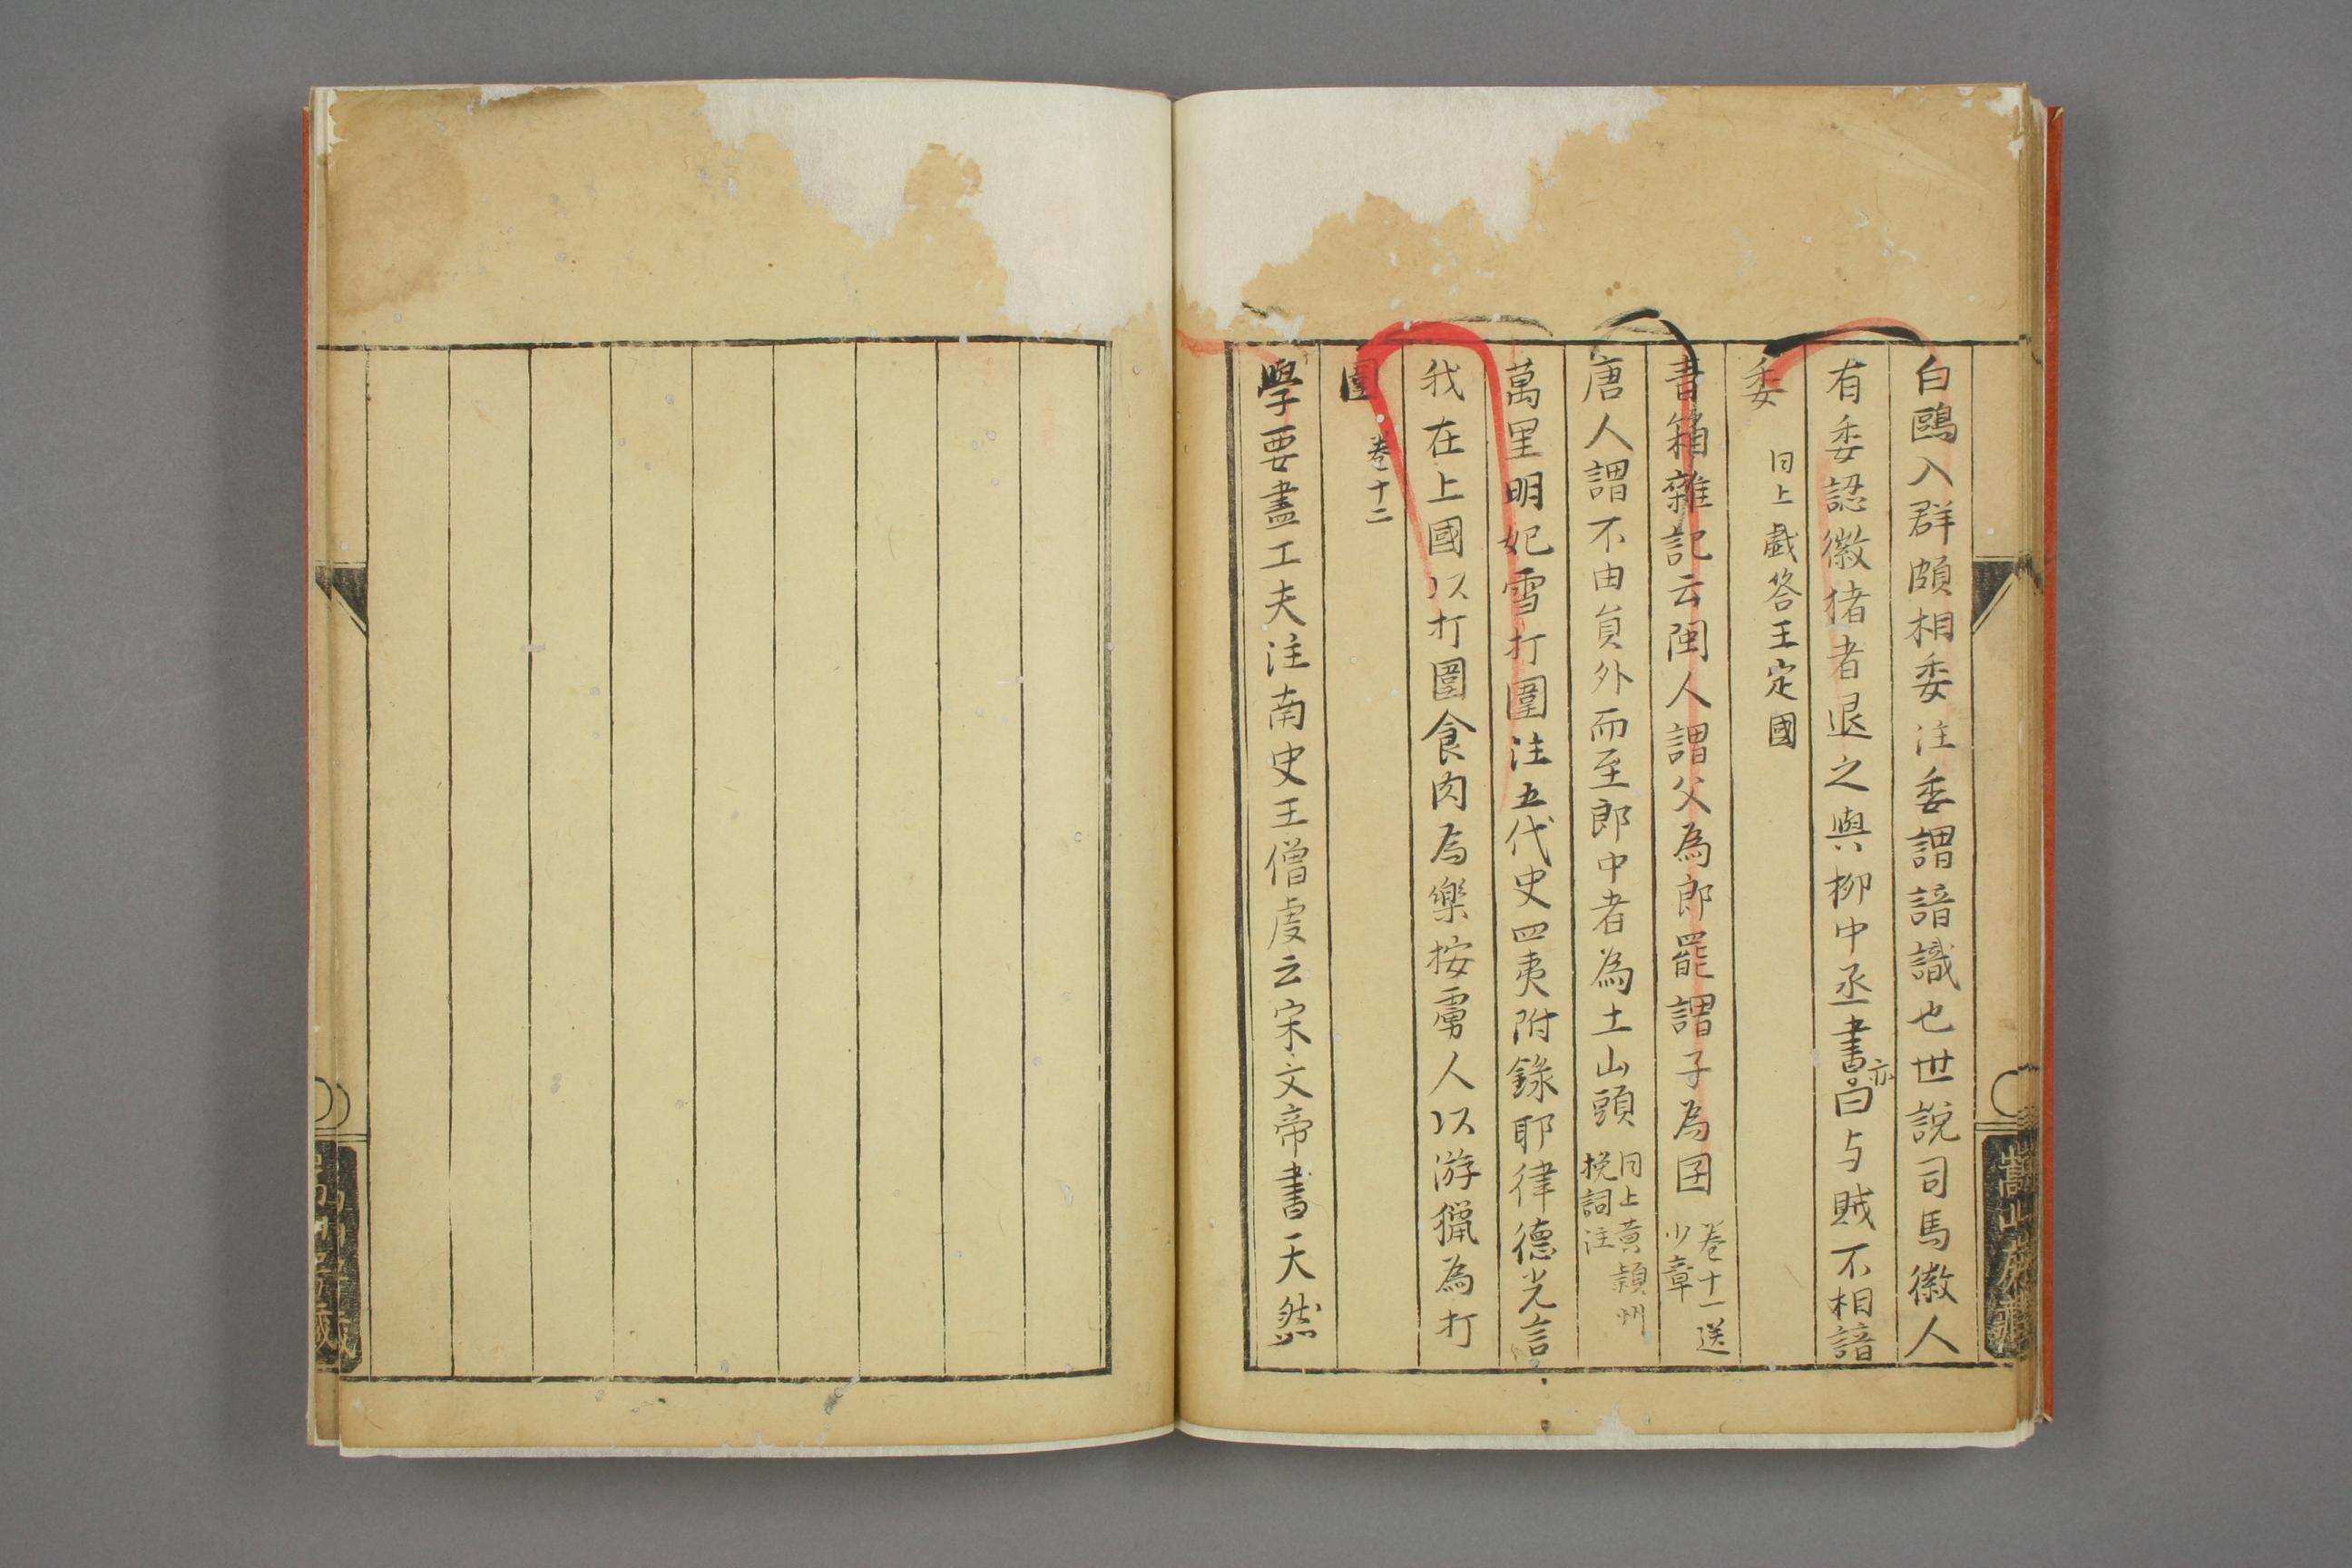 白鷗入群頗相委注委謂諳識也世說司馬徽人
有委認徽猪者退之與柳中丞書亦曰与賊不相諳
委 同上戲答王定國
青箱雜記云閩人謂父為郎罷謂子為囝 卷十一送少章
唐人謂不由員外而至郎中者為土山頭 同上黃潁州挽詞注
萬里明妃雪打圍注五代史四夷附錄耶律德光言
我在上國以打圍食肉為樂按虜人以游獵為打
圍 卷十二
學要盡工夫注南史王僧虔云宋文帝書天然
嵩山